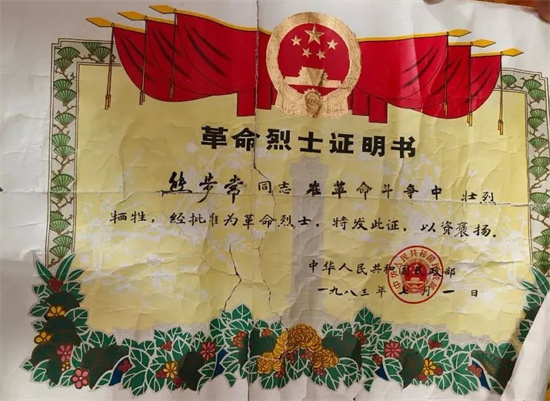 革命烈士证明书
步常同志在革命斗争中壮烈
牺牲，经批准为革命烈士，特发此证，以资褒扬。
中华人民共和国民政部
一九八三年 月一日